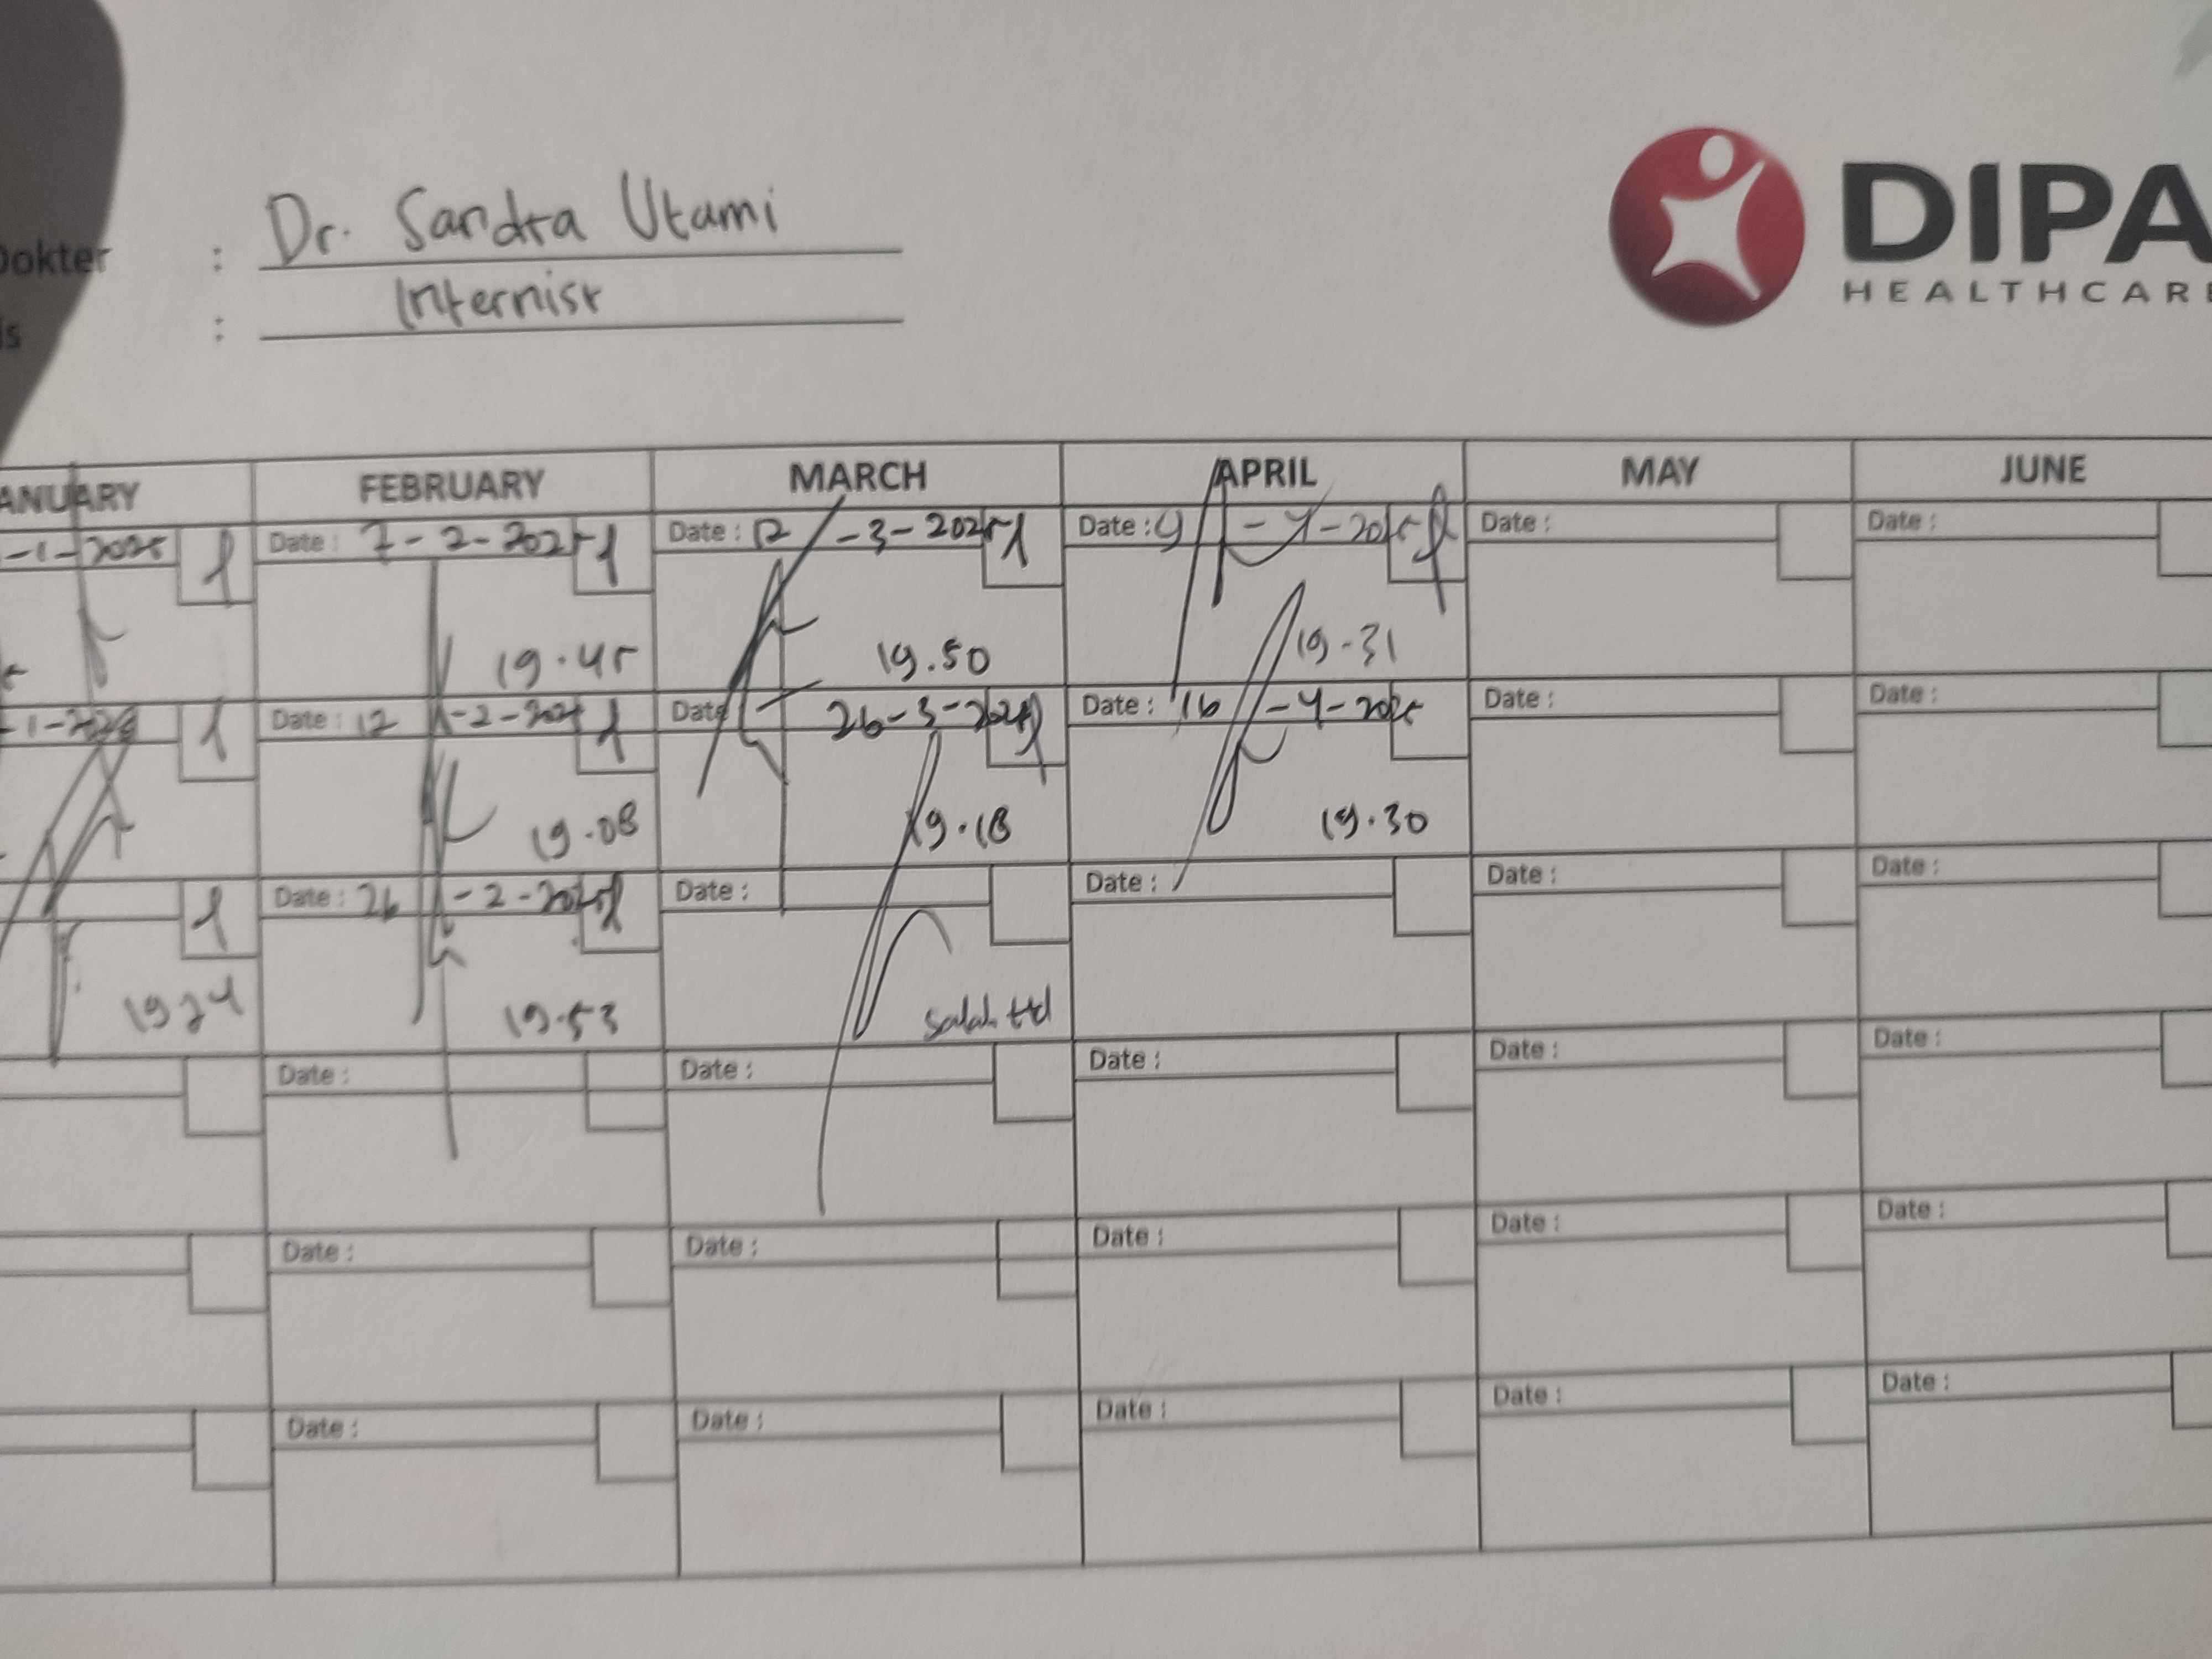 Dr. Sandra Utami
Dokter :
Internist
:
DIPA
HEALTHCARE
ANUARY FEBRUARY MARCH APRIL MAY JUNE
-1-2025 Date : 7-2-2025 Date : 12 -3-2025 Date : 9 -4-2025 Date : Date :
19.45 19.50 19.31
Date : 12 -2-2025 Date 26-3-2025 Date : 16 -4-2025 Date : Date :
19.08 19.18 19.30
Date : 26 -2-2025 Date : Date : Date : Date :
1924 19.53 Salah ttd
Date : Date : Date : Date : Date :
Date : Date : Date : Date : Date :
Date : Date : Date : Date : Date :